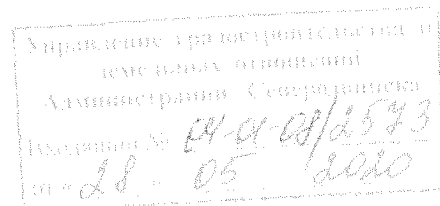 Управление градостроительства и
земельных отношений
Администрации Северодвинска
Входящий № 04-01-08/2573
от « 28 » 05 2020